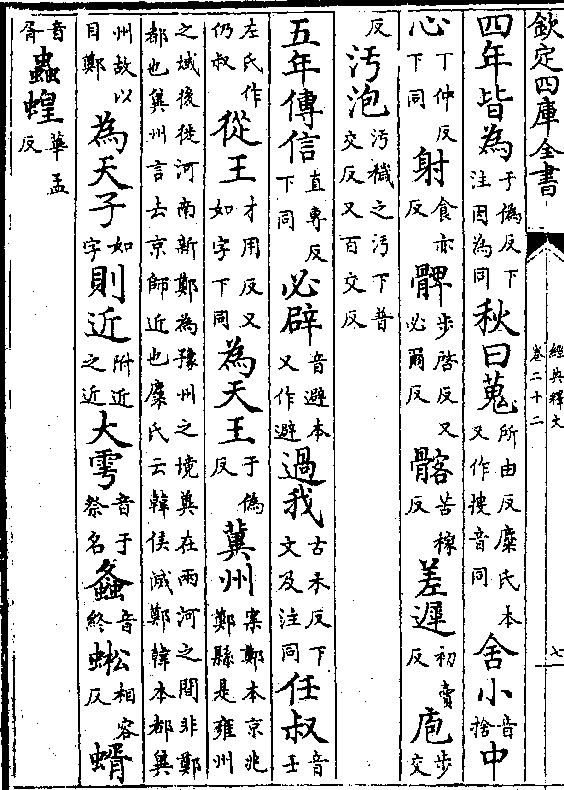 欽定四庫全書
經典釋文
卷二十二
七
四年皆為于偽反下注因為同秋曰蒐所由反麋氏本又作搜音同舍小音捨中
心丁仲反下同射食亦反髀步啓反又必爾反髂苦稼反差遲初賣反庖步交
反污泡污穢之污下普交反又百交反
五年傳信直專反下同必辟音避本又作避過我古禾反下文及注同任叔音壬
左氏作仍叔從王才用反又如字下同為天王于偽反冀州案鄭本京兆鄭縣是雍州
之域後徙河南新鄭為豫州之境冀在兩河之間非鄭都也冀州言去京師近也麋氏云韓侯滅鄭韓本都冀
州故以目鄭為天子如字則近附近之近大雩音于祭名螽音終蜙相容反蝑
音胥蟲蝗華孟反